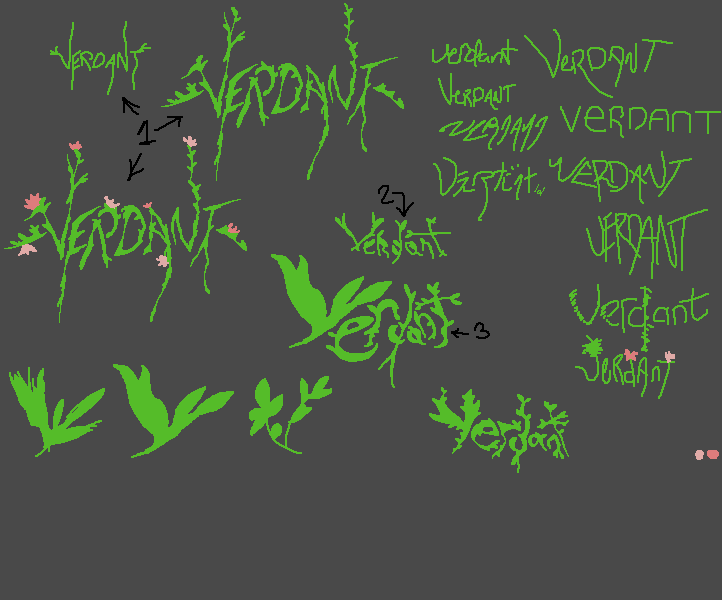 VERDANT
VERDANT
verdant
VERDANT
VERDANT
VERDANT
1
VERDANT
VERDANT
VERDANT
2
Verdant
VERDANT
Verdant
3
Verdant
VERdANT
Verdant